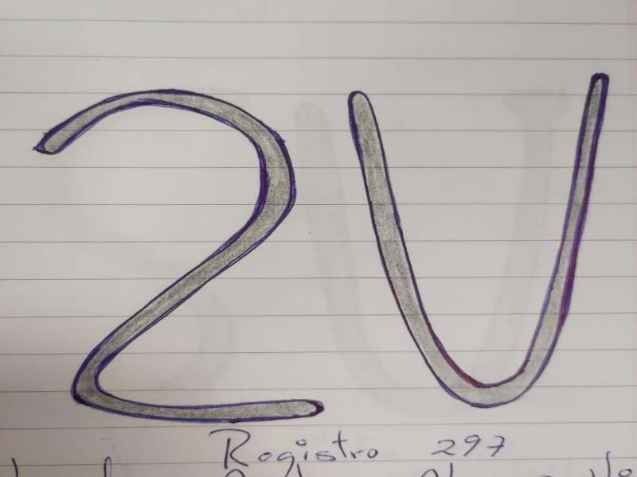 2U
Registro 297